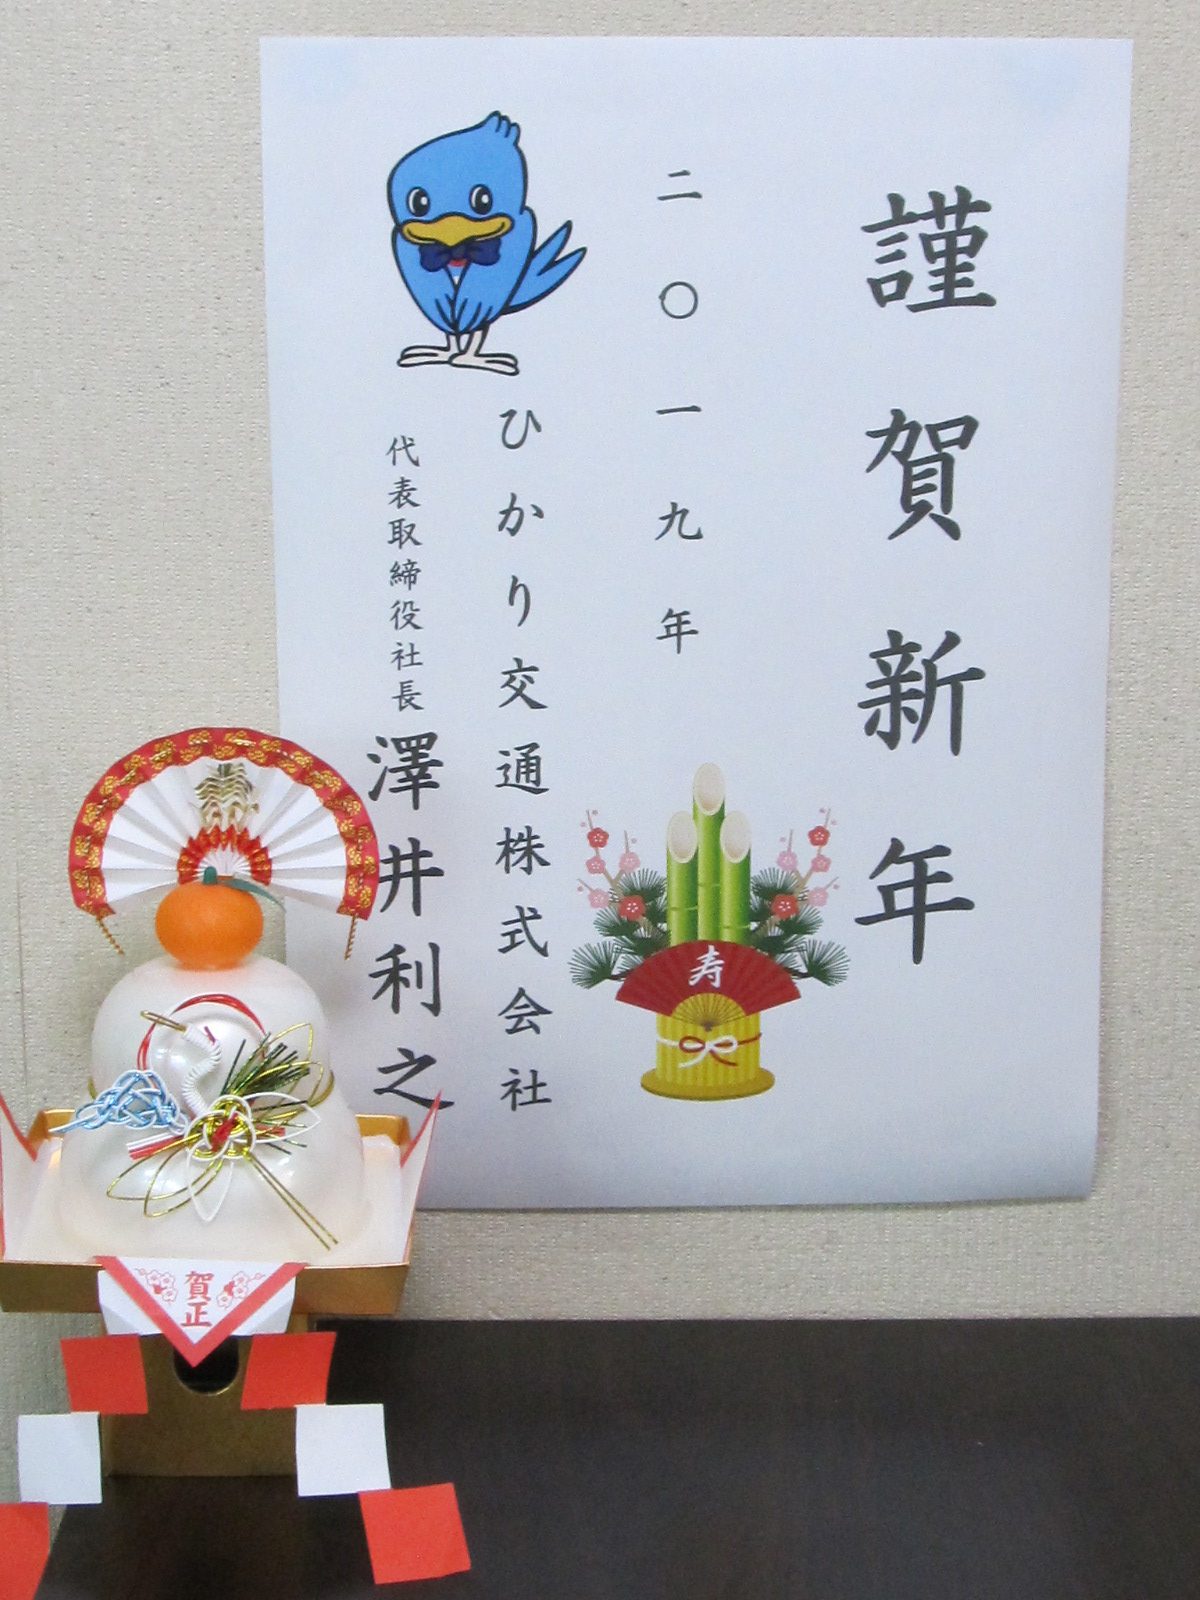 謹賀新年
二〇一九年
ひかり交通株式会社
代表取締役社長 澤井利之
寿
賀正